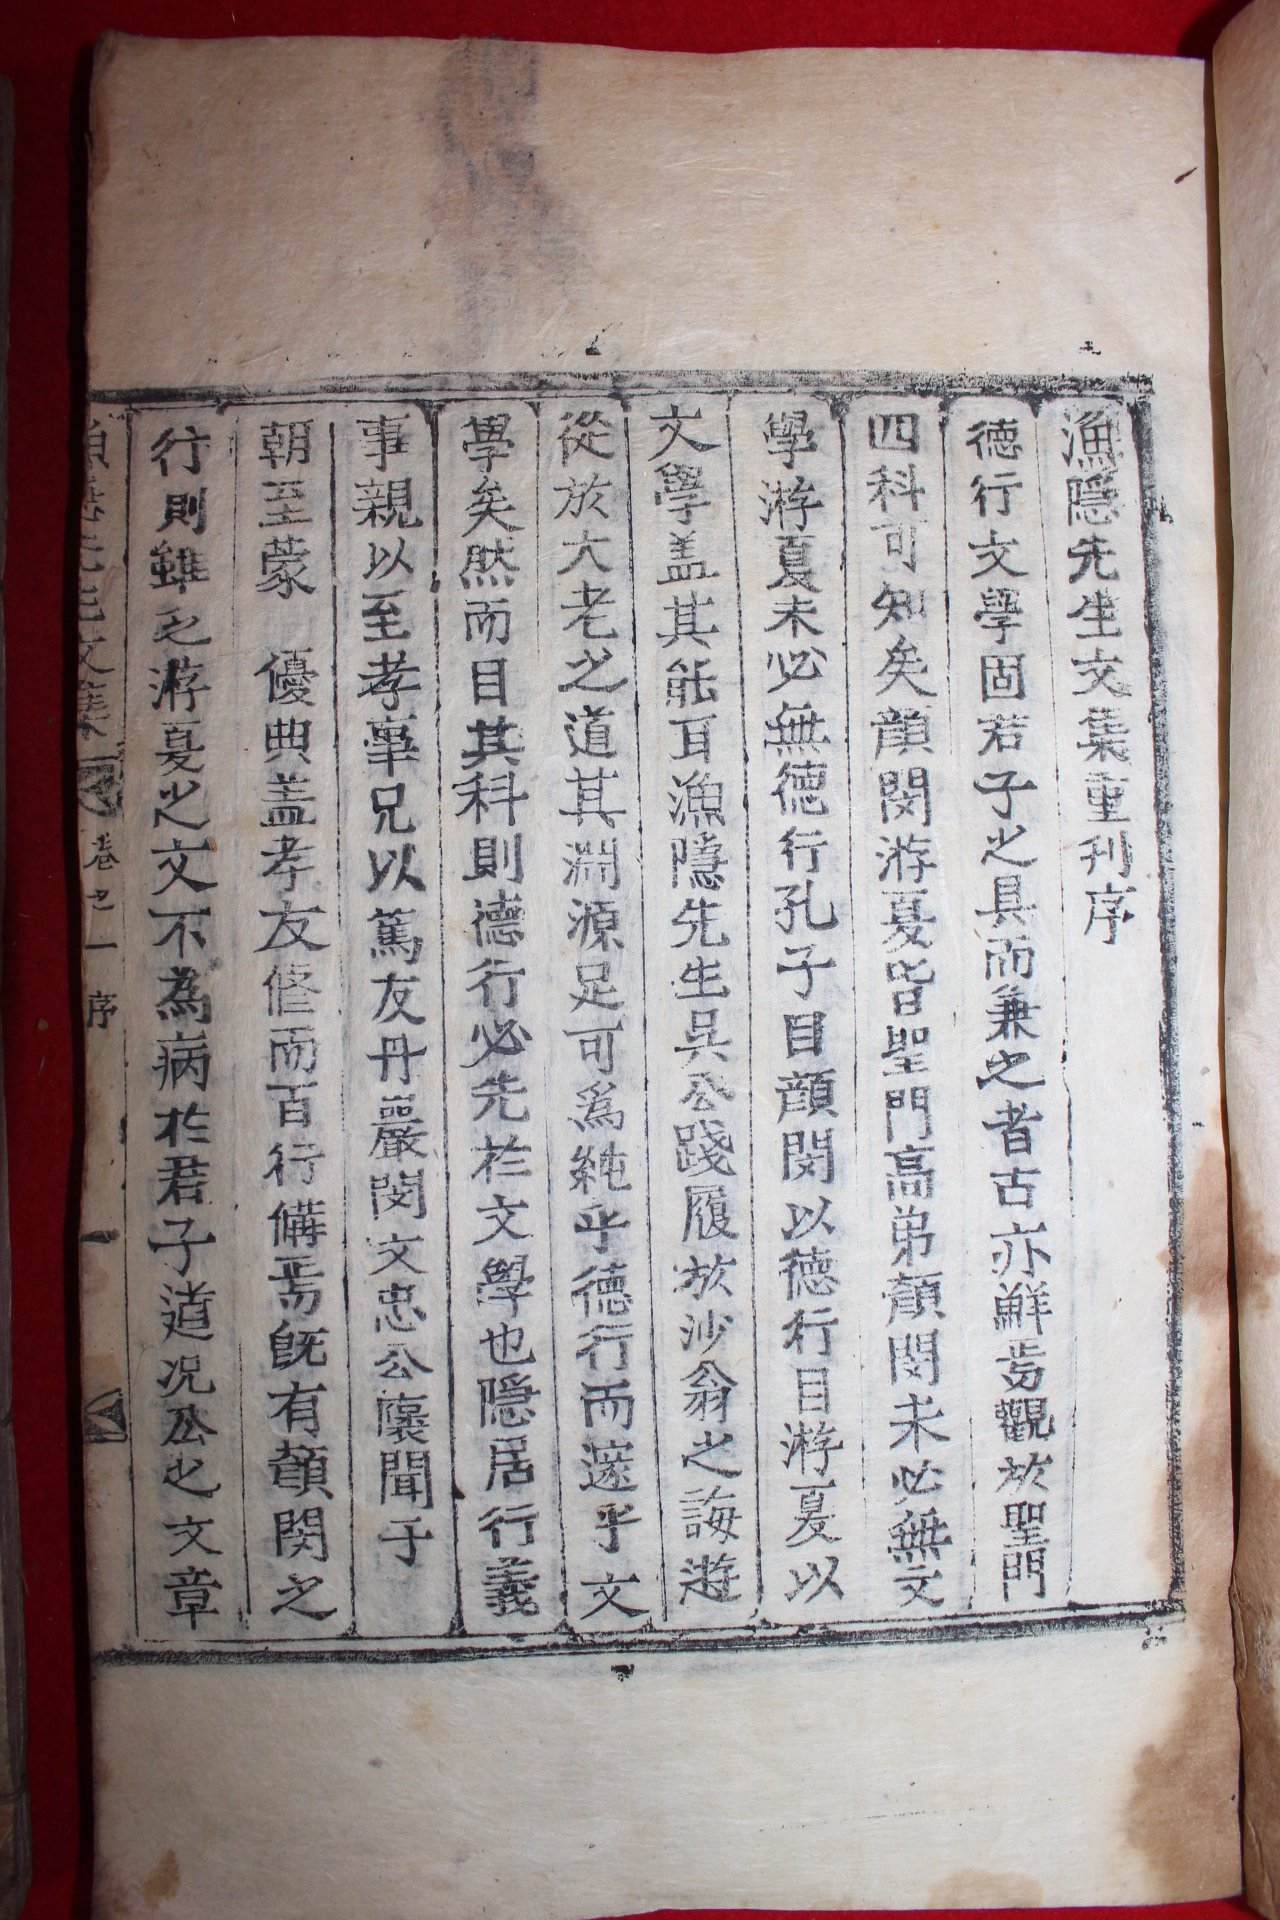 漁隱先生文集重刋序
德行文學固君子之具而兼之者古亦鮮焉觀於聖門
四科可知矣顔閔游夏皆聖門高弟顔閔未必無文
學游夏未必無德行孔子目顔閔以德行目游夏以
文學盖其能耳漁隱先生吳公踐履於沙翁之誨遊
從於大老之道其淵源足可爲純乎德行而邃乎文
學矣然而目其科則德行必先於文學也隱居行義
事親以至孝事兄以篤友丹巖閔文忠公褱聞于
朝至蒙 優典盖孝友修而百行備焉旣有顔閔之
行則雖乏游夏之文不為病於君子道况公之文章
先生文集 卷之一 序 一